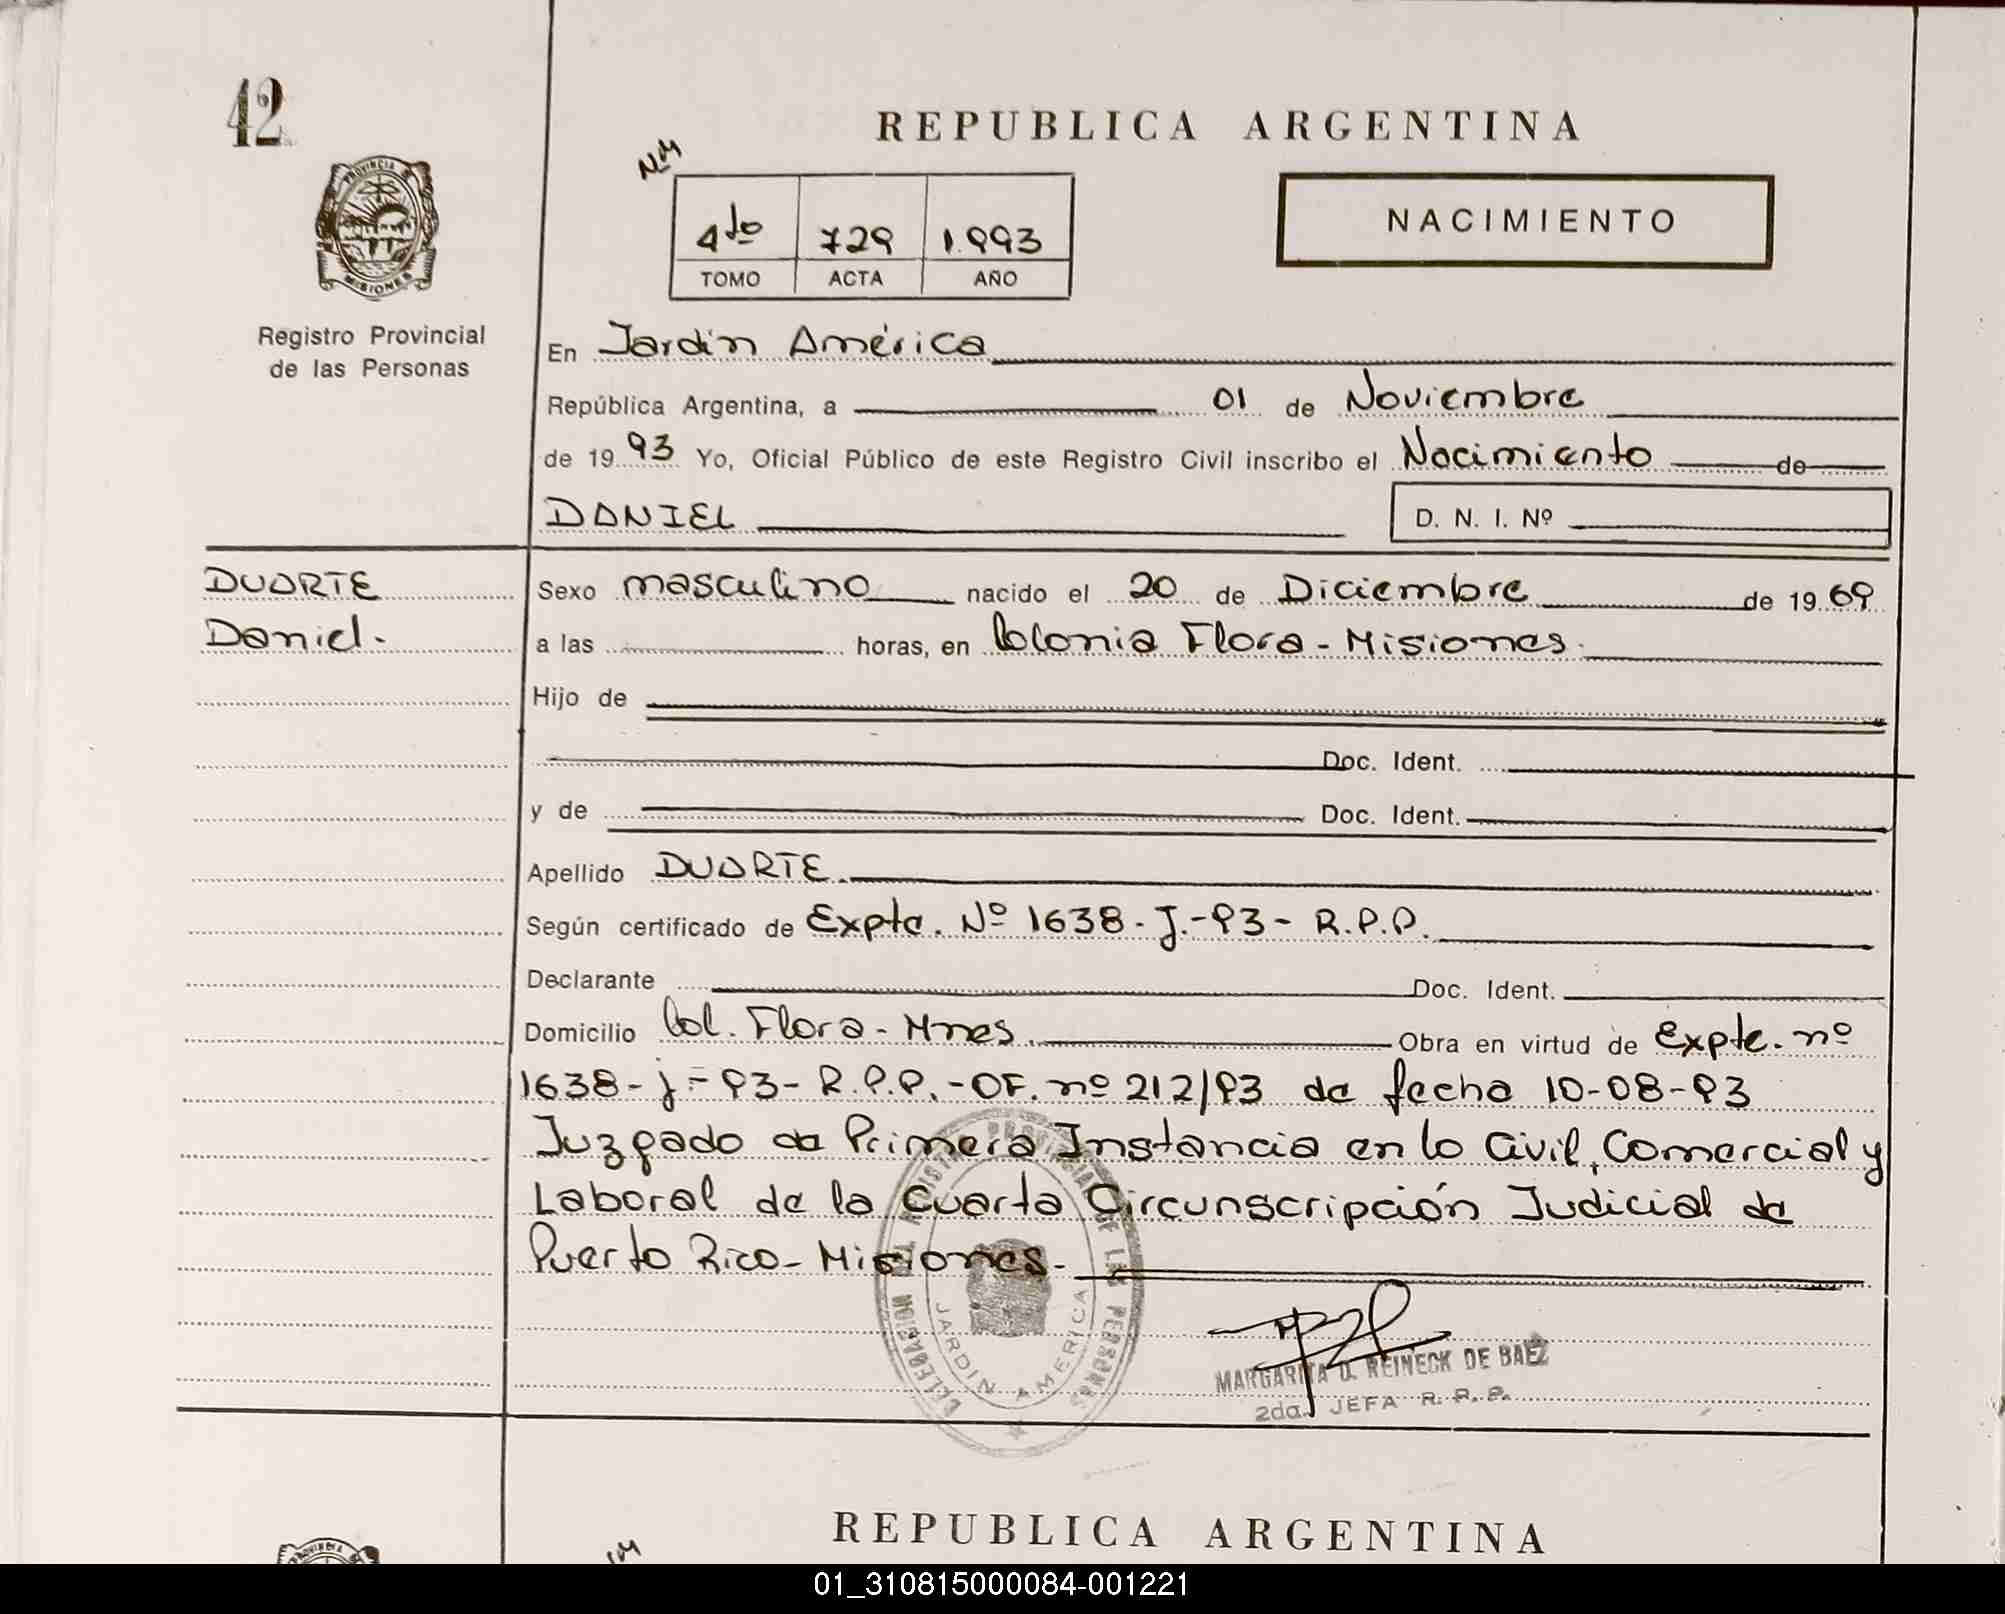 42
REPUBLICA ARGENTINA
NM
4to 729 1.993
TOMO ACTA AÑO
NACIMIENTO
PROVINCIA
MISIONES
Registro Provincial
de las Personas
En Jardín América
República Argentina, a 01 de Noviembre
de 19 93 Yo, Oficial Público de este Registro Civil inscribo el Nacimiento de
DANIEL D. N. I. Nº
DUARTE
Daniel.
Sexo masculino nacido el 20 de Diciembre de 19 69
a las horas, en Colonia Flora - Misiones.
Hijo de
Doc. Ident.
y de Doc. Ident.
Apellido DUARTE
Según certificado de Expte. Nº 1638 - J. - 93 - R.P.P.
Declarante Doc. Ident.
Domicilio Col. Flora - Mnes. Obra en virtud de Expte. nº
1638 - j - 93 - R.P.P. - OF. nº 212/93 de fecha 10-08-93
Juzgado de Primera Instancia en lo Civil, Comercial y
Laboral de la Cuarta Circunscripción Judicial de
Puerto Rico - Misiones.
DELEGACION DEL REGISTRO PROVINCIAL DE LAS PERSONAS
JARDIN AMERICA
MARGARITA D. REINECK DE BAEZ
2da. JEFA R. P. P.
REPUBLICA ARGENTINA
PROVINCIA
01_310815000084-001221